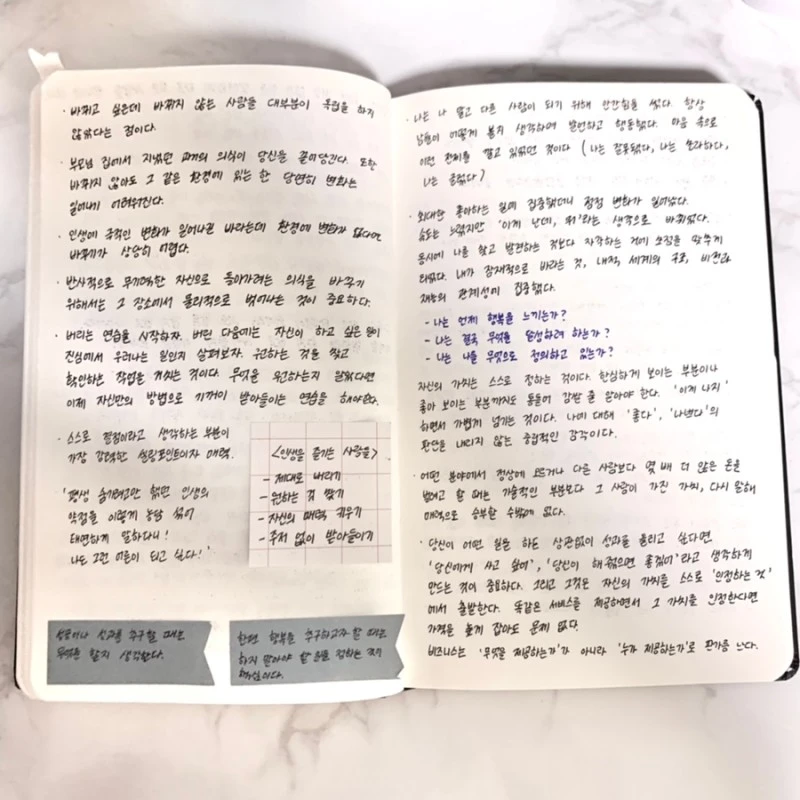 · 바뀌고 싶은데 바뀌지 않는 사람들 대부분이 독립을 하지
않았다는 점이다.
· 부모님 집에서 지냈던 과거의 의식이 당신을 끌어당긴다. 또한
바뀌지 않아도 그 같은 환경에 있는 한 당연히 변화는
일어나기 어려워진다.
· 인생에 극적인 변화가 일어나길 바라는데 환경에 변화가 없다면
바뀌기가 상당히 어렵다.
· 반사적으로 무기력한 자신으로 돌아가려는 의식을 바꾸기
위해서는 그 장소에서 물리적으로 벗어나는 것이 중요하다.
· 버리는 연습을 시작하자. 버린 다음에는 자신이 하고 싶은 일이
진심에서 우러나는 일인지 살펴보자. 원하는 것을 찾고
확인하는 작업을 거치는 것이다. 무엇을 원하는지 알았다면
이제 자신만의 방법으로 기꺼이 받아들이는 연습을 해야한다.
· 스스로 결점이라고 생각하는 부분이
가장 강력한 셀링포인트이자 매력.
'평생 숨기려고만 했던 인생의
약점을 이렇게 농담 섞어
태연하게 말하다니!
나도 그런 어른이 되고 싶다!'
<인생을 즐기는 사람들>
- 제대로 버리기
- 원하는 것 찾기
- 자신의 매력 키우기
- 주저 없이 받아들이기
성공이나 성과를 추구할 때는
무엇을 할지 생각한다.
한편 행복을 추구하고자 할 때는
하지 말아야 할 일을 정하는 것이
핵심이다.
· 나는 나 말고 다른 사람이 되기 위해 안간힘을 썼다. 항상
남들이 어떻게 볼지 생각하며 발언하고 행동했다. 마음 속으로
이런 전제를 깔고 있었던 것이다 (나는 잘못됐다, 나는 초라하다,
나는 글렀다)
· 최대한 좋아하는 일에 집중했더니 점점 변화가 일어났다.
속도는 느렸지만 '이게 난데, 뭐'라는 생각으로 바뀌었다.
동시에 나를 찾고 발견하는 것보다 자각하는 것에 초점을 맞추게
되었다. 내가 잠재적으로 바라는 것, 내적 세계의 구조, 비전과
재능의 관계성에 집중했다.
- 나는 언제 행복을 느끼는가?
- 나는 결국 무엇을 달성하려 하는가?
- 나는 나를 무엇으로 정의하고 있는가?
자신의 가치는 스스로 정하는 것이다. 한심하게 보이는 부분이나
좋아 보이는 부분까지도 통틀어 감쌀 줄 알아야 한다. '이게 나지'
하면서 가볍게 넘기는 것이다. 나에 대해 '좋다', '나쁘다'의
판단을 내리지 않는 중립적인 감각이다.
· 어떤 분야에서 정상에 오르거나 다른 사람보다 몇 배 더 많은 돈을
벌려고 할 때는 기술적인 부분보다 그 사람이 가진 가치, 다시 말해
매력으로 승부할 수밖에 없다.
· 당신이 어떤 일을 하든 상관없이 성과를 올리고 싶다면
'당신에게 사고 싶어', '당신이 해줬으면 좋겠어'라고 생각하게
만드는 것이 중요하다. 그리고 그것은 자신의 가치를 스스로 '인정하는 것'
에서 출발한다. 똑같은 서비스를 제공하면서 그 가치를 인정한다면
가격을 높게 잡아도 문제 없다.
비즈니스는 '무엇을 제공하는가'가 아니라 '누가 제공하는가'로 판가름 난다.